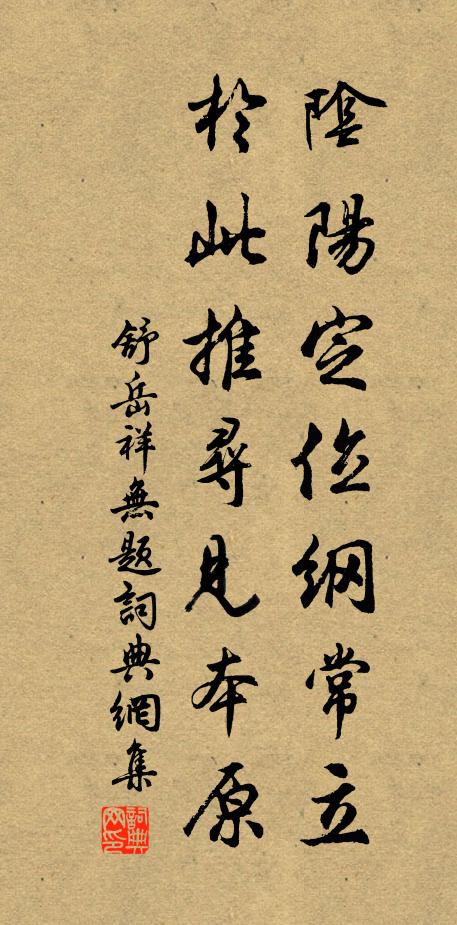 陰陽定位綱常立
於此推尋見本原
舒岳祥無題詞典網集
詞典网印